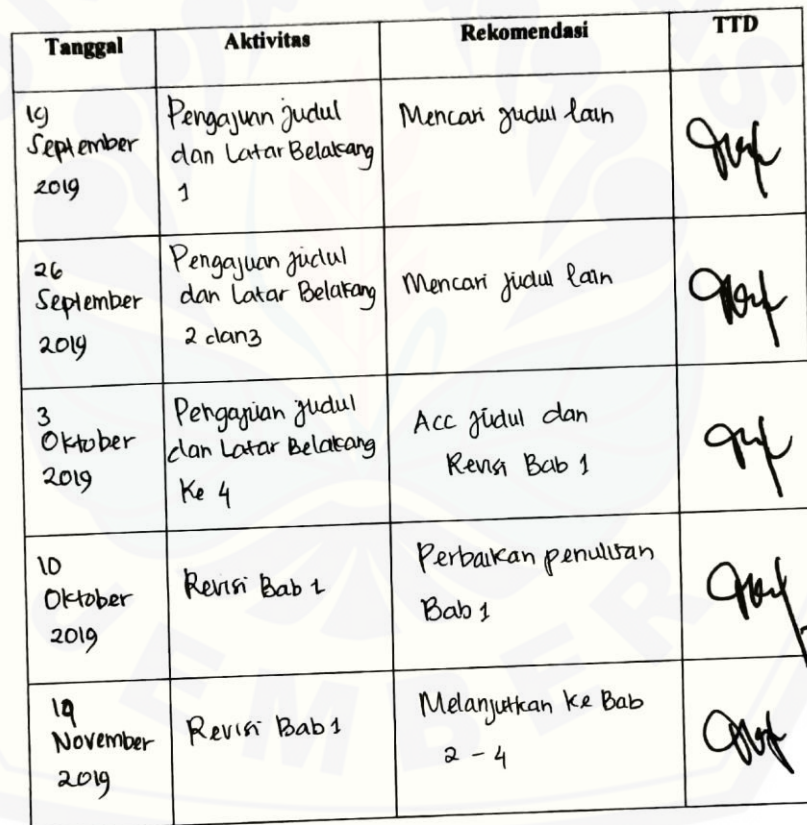 Tanggal Aktivitas Rekomendasi TTD
19
September
2019
Pengajuan judul
dan Latar Belakang
1
Mencari judul lain
26
September
2019
Pengajuan judul
dan Latar Belakang
2 dan 3
Mencari judul lain
3
Oktober
2019
Pengajuan judul
dan Latar Belakang
Ke 4
Acc judul dan
Revisi Bab 1
10
Oktober
2019
Revisi Bab 1
Perbaikan penulisan
Bab 1
19
November
2019
Revisi Bab 1
Melanjutkan ke Bab
2 - 4
EMBER